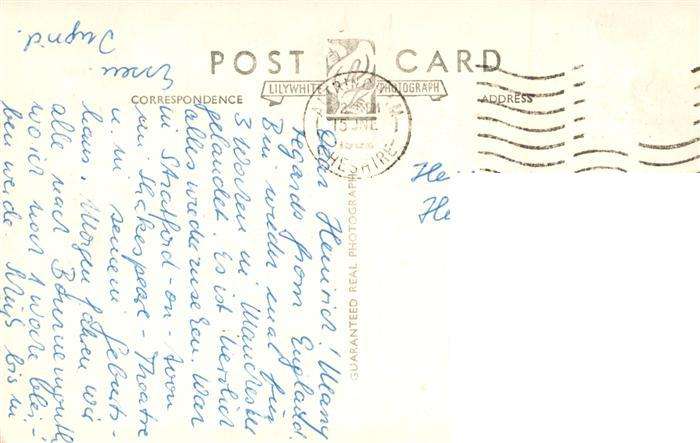 POST CARD
LILYWHITE PHOTOGRAPH
CORRESPONDENCE
ADDRESS
ALTRINCHAM
CHESHIRE
GUARANTEED REAL PHOTOGRAPH
He
He
Dear Heinrich! Many
regards from England.
Bin wieder mal für
3 Wochen in Manchester
gelandet. Es ist herrlich
alles wiederzusehen. War
in Stratford-on-Avon
im Shakespeare-Theatre
u. in seinem Geburts-
haus. Morgen fahren wir
alle nach Bournemouth
wo ich noch 1 Woche blei-
ben werde. bis in
Essen.
Ingrid.